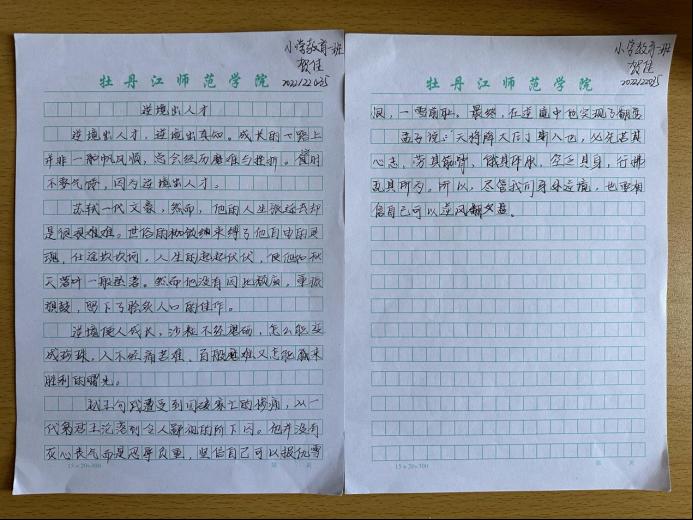 小学教育一班
贺佳
2022122025
牡丹江师范学院
逆境出人才
逆境出人才，逆境出真知。成长的一路上
并非一帆风顺，总会经历磨难与挫折。有时
不要气馁，因为逆境出人才。
苏轼一代文豪，然而，他的人生旅途却
是很艰难。世俗的枷锁缠束缚了他自由的灵
魂，仕途坎坎坷，人生的起起伏伏，使他如秋
天落叶一般坠落。然而他没有因此颓废，重振
旗鼓，留下了脍炙人口的佳作。
逆境使人成长，沙粒不经磨砺，怎么能变
成珍珠，人不经痛苦难、百般磨难又怎能赢来
胜利的曙光。
越王勾践遭受到国破家亡的惨痛，从一
代君王沦落到令人鄙视的阶下囚。他并没有
灰心丧气而是忍辱负重，坚信自己可以报仇雪
15×20=300
第 页
小学教育一班
贺佳
2022122025
牡丹江师范学院
恨，一雪前耻。最终，在逆境中他实现了翻盘
孟子说：“天将降大任于斯人也，必先苦其
心志，劳其筋骨，饿其体肤，空乏其身，行拂
乱其所为。所以，尽管我们身处逆境，也要相
信自己可以逆风翻盘。
15×20=300
第 页